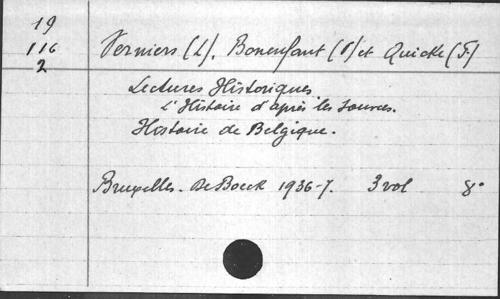 19
116
2
Verniers (L). Bonenfant (P) et Quicke (F)
Lectures Historiques
L'Histoire d'après les sources.
Histoire de Belgique.
Bruxelles. De Boeck 1936-7. 3 vol 8°